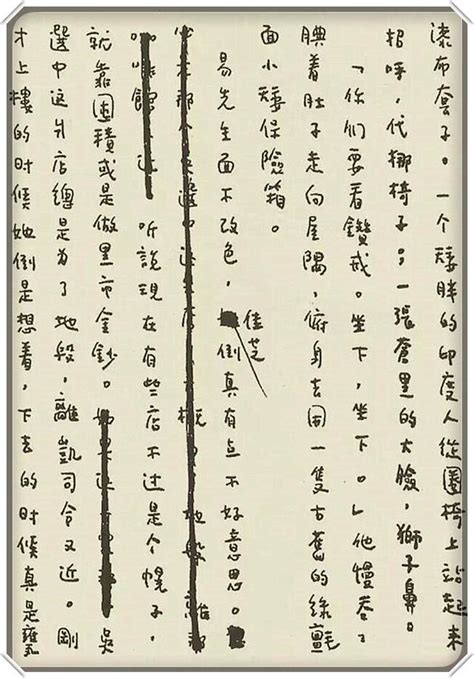 漆布套子。一个矮胖的印度人從圈椅上站起來
招呼,代挪椅子;一張蒼黑的大臉,獅子鼻。
「你們要看鑽戒。坐下,坐下。」他慢吞々
腆着肚子走向屋隅,俯身去開一隻古舊的綠氈
面小矮保險箱。
易先生面不改色,佳芝倒真有点不好意思。
听說現在有些店不过是个幌子,
就靠囤積或是做黑市金鈔。吳
選中這爿店總是为了地段,離凱司令又近。剛
才上樓的时候她倒是想着,下去的时候真是甕